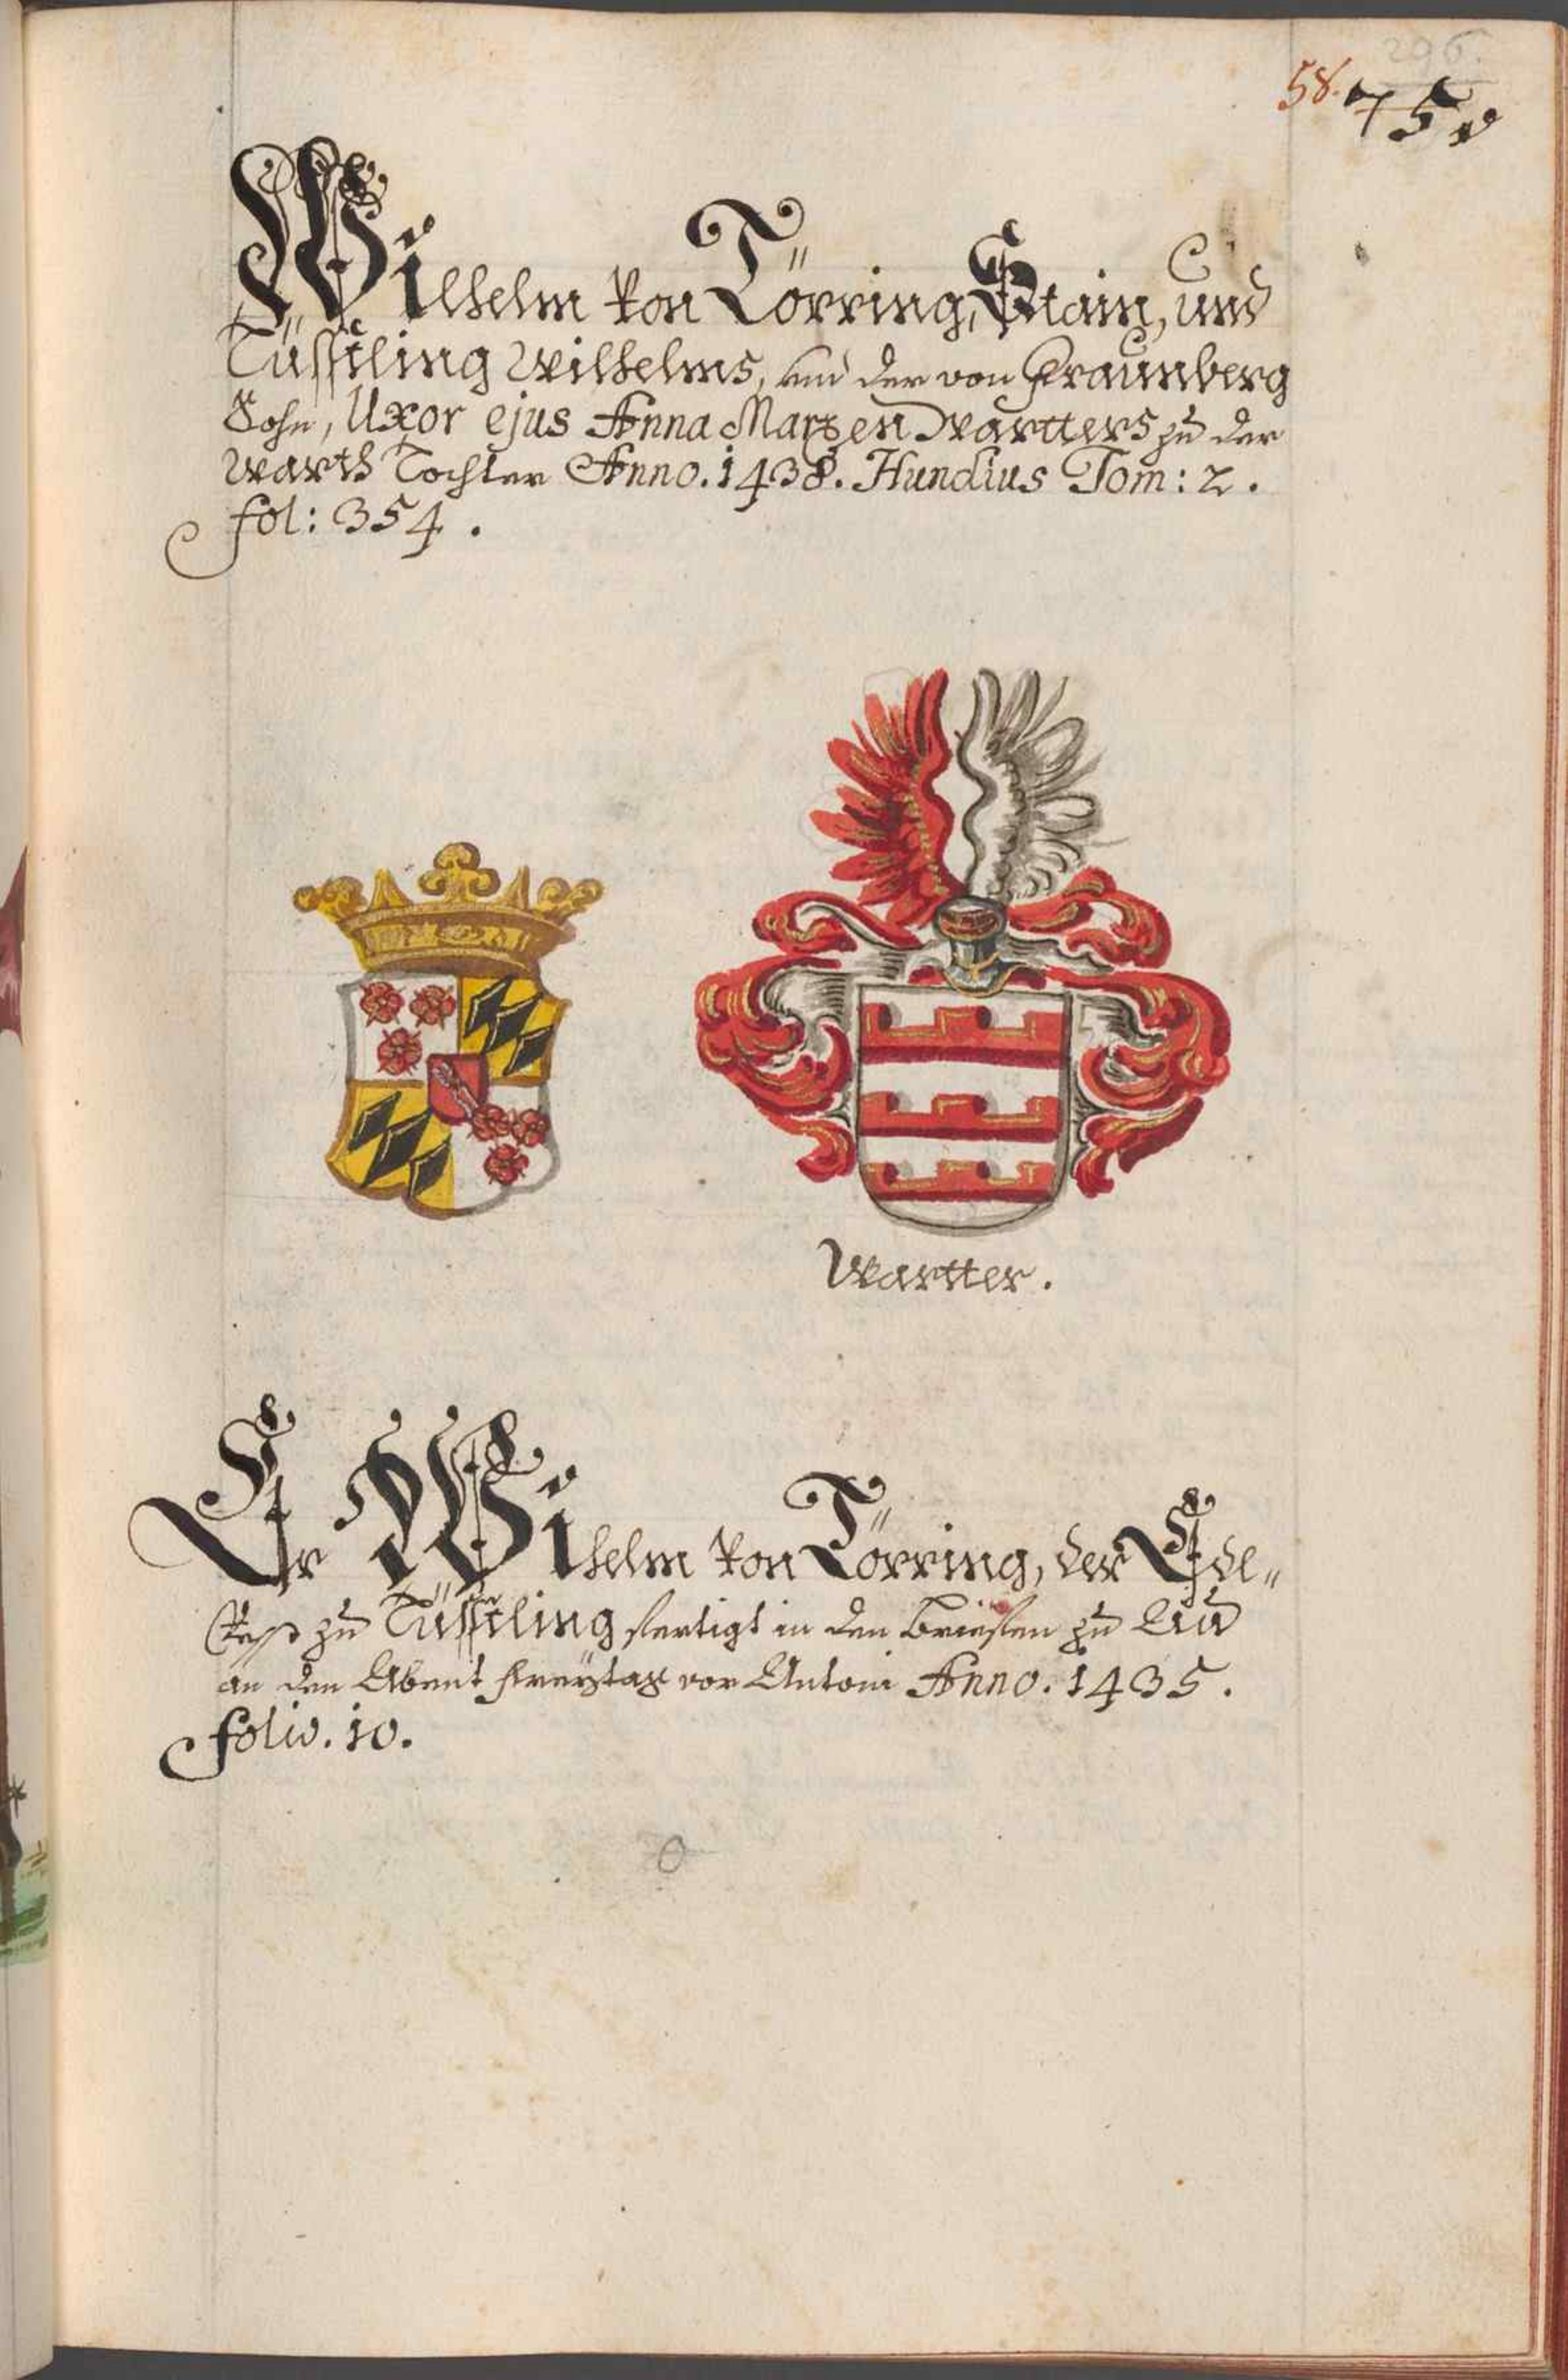 296.
58. 75
Wilhelm von Törring, Stain, und
Tüssling Wilhelms, und der von Fraunberg
Sohn, Uxor ejus Anna Marxen Wartters zu der
Warth Tochter Anno. 1438. Hundius Tom: 2.
fol: 354.
Wartter.
Er Wilhelm von Törring, der Ede„
zu Tüssling fertigt in den Brieffen zu Au
an den Abent Freytag vor Antoni Anno. 1435.
folio. 10.